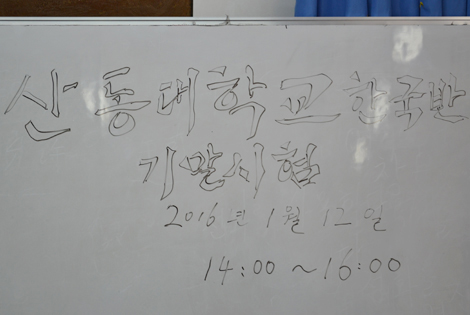 산동대학교 한국반
기말시험
2016년 1월 12일
14:00 ~ 16:00